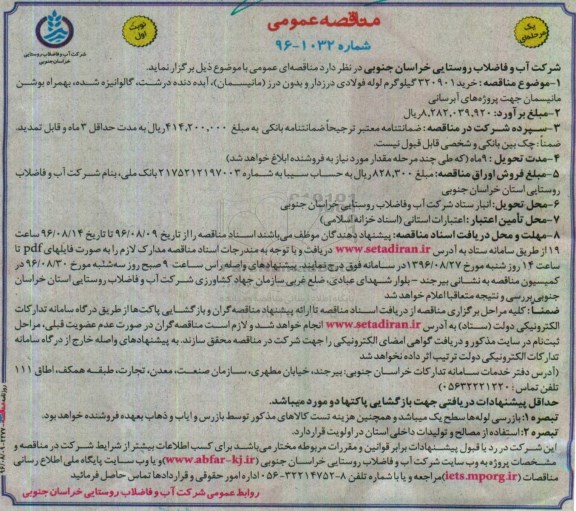 مناقصه عمومی
شماره ۱۰۳۲-۹۶
یک مرحله‌ای
نوبت اول
شرکت آب و فاضلاب روستایی خراسان جنوبی
شرکت آب و فاضلاب روستایی خراسان جنوبی در نظر دارد مناقصه‌ای عمومی با موضوع ذیل برگزار نماید.
۱-موضوع مناقصه: خرید ۳۲۰۹۰۱ گیلوگرم لوله فولادی درزدار و بدون درز (مانیسمان)، آبده دنده درشت، گالوانیزه شده، بهمراه بوشن
مانیسمان جهت پروژه‌های آبرسانی
۲-مبلغ برآورد: ۸,۲۸۲,۰۳۹,۹۲۰ریال
۳-سپرده شرکت در مناقصه: ضمانتنامه معتبر ترجیحاً ضمانتنامه بانکی به مبلغ ۴۱۴,۲۰۰,۰۰۰ریال به مدت حداقل ۳ماه و قابل تمدید.
ضمناً: چک بین بانکی و شخصی قابل قبول نیست.
۴-مدت تحویل: ۹ماه (که طی چند مرحله مقدار مورد نیاز به فروشنده ابلاغ خواهد شد)
۵-مبلغ فروش اوراق مناقصه: مبلغ ۸۲۸,۳۰۰ریال به حساب سیبا به شماره ۲۱۷۵۲۱۲۱۹۷۰۰۳ بانک ملی، بنام شرکت آب و فاضلاب
روستایی استان خراسان جنوبی
۶-محل تحویل: انبار ستاد شرکت آب و فاضلاب روستایی خراسان جنوبی
۷-محل تأمین اعتبار: اعتبارات استانی (اسناد خزانه اسلامی)
۸-مهلت و محل دریافت اسناد مناقصه: پیشنهاد دهندگان موظف می‌باشند اسناد مناقصه را از تاریخ ۹۶/۰۸/۰۹ تا تاریخ ۹۶/۰۸/۱۴ ساعت
۱۹ از طریق سامانه ستاد به آدرس www.setadiran.ir دریافت و با توجه به مندرجات اسناد مناقصه مدارک لازم را به صورت فایلهای pdf تا
ساعت ۱۴ روز شنبه مورخ ۱۳۹۶/۰۸/۲۷ در سامانه فوق درج نمایند. پیشنهادهای واصله راس ساعت ۹ صبح روز سه‌شنبه مورخ ۹۶/۰۸/۳۰ در
کمیسیون مناقصه به نشانی بیرجند - بلوار شهدای عبادی، ضلع غربی سازمان جهاد کشاورزی شرکت آب و فاضلاب روستایی استان خراسان
جنوبی بررسی و نتیجه متعاقبا اعلام خواهد شد
ضمناً: کلیه مراحل برگزاری مناقصه از دریافت اسناد مناقصه تا ارائه پیشنهاد مناقصه‌گران و بازگشایی پاکت‌ها از طریق درگاه سامانه تدارکات
الکترونیکی دولت (ستاد) به آدرس www.setadiran.ir انجام خواهد شد و لازم است مناقصه‌گران در صورت عدم عضویت قبلی، مراحل
ثبت‌نام در سایت مذکور و دریافت گواهی امضای الکترونیکی را جهت شرکت در مناقصه محقق سازند. به پیشنهادهای واصله خارج از درگاه سامانه
تدارکات الکترونیکی دولت ترتیب اثر داده نخواهد شد
(آدرس دفتر خدمات سامانه تدارکات خراسان جنوبی: بیرجند، خیابان مطهری، سازمان صنعت، معدن، تجارت، طبقه همکف، اطاق ۱۱۱
تلفن تماس: ۰۵۶۳۲۲۲۱۲۲۰)
حداقل پیشنهادات دریافتی جهت بازگشایی پاکتها دو مورد میباشد.
تبصره ۱: بازرسی لوله‌ها سطح یک میباشد و همچنین هزینه تست کالاهای مذکور توسط بازرس و ایاب و ذهاب بعهده فروشنده خواهد بود.
تبصره ۲: استفاده از مصالح و تولیدات داخلی استان در اولویت قرار دارد.
این شرکت در رد یا قبول پیشنهادات برابر قوانین و مقررات مربوطه مختار می‌باشد برای کسب اطلاعات بیشتر از شرایط شرکت در مناقصه و
مشخصات پروژه به وب سایت شرکت آب و فاضلاب روستایی خراسان جنوبی (www.abfar-kj.ir) و یا وب سایت پایگاه ملی اطلاع رسانی
مناقصات (iets.mporg.ir) مراجعه و یا با شماره تلفن ۸-۰۵۶-۳۲۲۱۴۷۵۲ اداره امور حقوقی و قراردادها تماس حاصل فرمائید
روابط عمومی شرکت آب و فاضلاب روستایی خراسان جنوبی